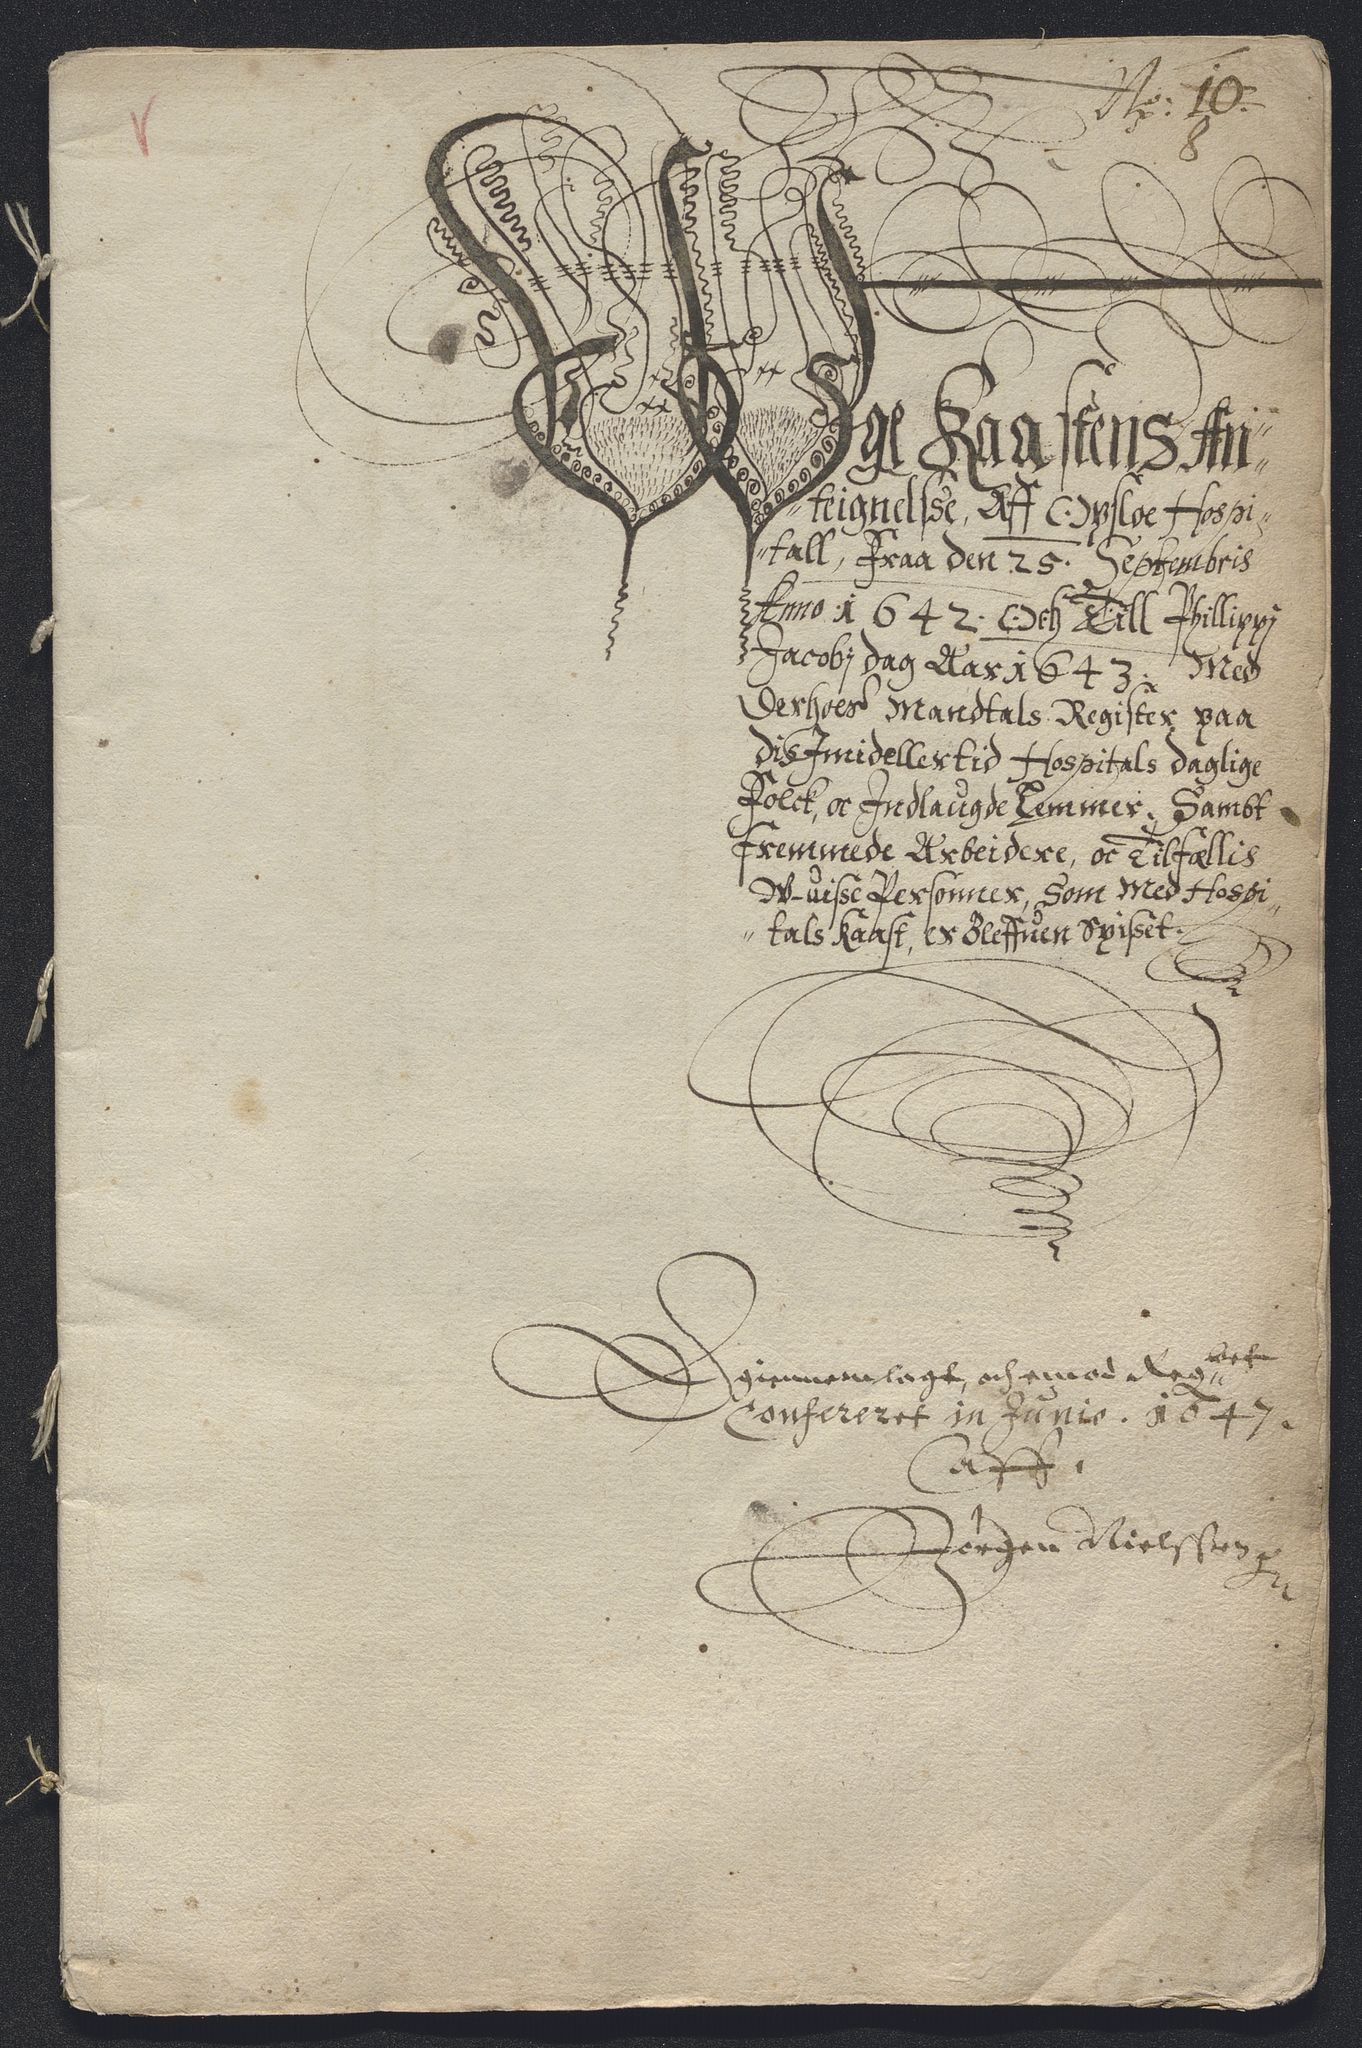 No: 10
8
Uge Kaastens An
teignelsse, Aff Opsloe Hospi
tall, Fraa den 25. Septembris
Anno 1642. Och Till Phillippi
Jacobj dag Aar 1643. Med
Derhoes Mandtals Register paa
dis Imidellertid Hospitals daglige
Folck, oc Indlaugde Lemmer, Sambt
fremmede Arbeidere, oc Tilfællis
W-uisse Personner, Som Med Hospi
tals Kaast, er Bleffuen Spisset.
giennemlagt, och emod Regbet
Confereret in Junio. 1647.
Aff.
Jørgen Nielssen